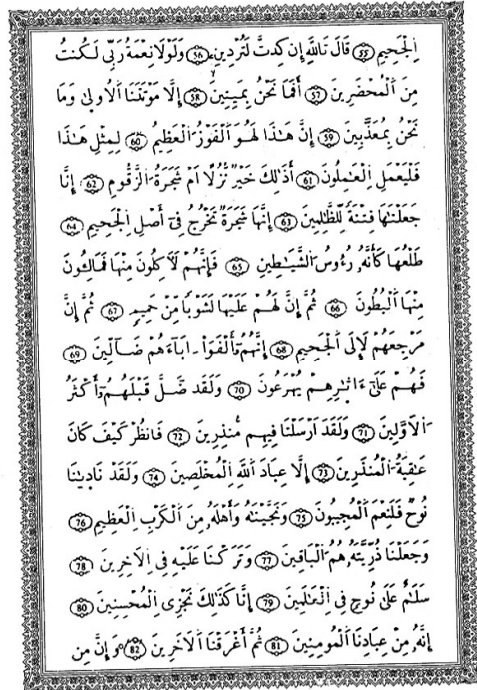 اِ۬لْجَحِيمِ 55 قَالَ تَاللَّهِ إِن كِدتَّ لَتُرْدِينِۦ 56 وَلَوْلَا نِعْمَةُ رَبِّي لَكُنتُ
مِنَ اَ۬لْمُحْضَرِينَ 57 أَفَمَا نَحْنُ بِمَيِّتِينَ 58 إِلَّا مَوْتَتَنَا اَ۬لُاولَىٰ وَمَا
نَحْنُ بِمُعَذَّبِينَ 59 إِنَّ هَٰذَا لَهُوَ اَ۬لْفَوْزُ اُ۬لْعَظِيمُ 60 لِمِثْلِ هَٰذَا
فَلْيَعْمَلِ اِ۬لْعَٰمِلُونَ 61 أَذَٰلِكَ خَيْرٌ نُّزُلًا اَمْ شَجَرَةُ اُ۬لزَّقُّومِ 62 إِنَّا
جَعَلْنَٰهَا فِتْنَةً لِّلظَّٰلِمِينَ 63 إِنَّهَا شَجَرَةٌ تَخْرُجُ فِيٓ أَصْلِ اِ۬لْجَحِيمِ 64
طَلْعُهَا كَأَنَّهُۥ رُءُوسُ اُ۬لشَّيَٰطِينِ 65 فَإِنَّهُمْ لَأٓكِلُونَ مِنْهَا فَمَالِـُٔونَ
مِنْهَا اَ۬لْبُطُونَ 66 ثُمَّ إِنَّ لَهُمْ عَلَيْهَا لَشَوْبًا مِّنْ حَمِيمٍ 67 ثُمَّ إِنَّ
مَرْجِعَهُمْ لَإِلَى اَ۬لْجَحِيمِ 68 إِنَّهُمُۥٓ أَلْفَوَاْ ءَابَآءَهُمْ ضَآلِّينَ 69
فَهُمْ عَلَىٰٓ ءَاثَٰرِهِمْ يُهْرَعُونَ 70 وَلَقَد ضَّلَّ قَبْلَهُمُۥٓ أَكْثَرُ
اُ۬لَاوَّلِينَ 71 وَلَقَدَ اَرْسَلْنَا فِيهِم مُّنذِرِينَ 72 فَانظُرْ كَيْفَ كَانَ
عَٰقِبَةُ اُ۬لْمُنذَرِينَ 73 إِلَّا عِبَادَ اَ۬للَّهِ اِ۬لْمُخْلَصِينَ 74 وَلَقَدْ نَادَىٰنَا
نُوحٌ فَلَنِعْمَ اَ۬لْمُجِيبُونَ 75 وَنَجَّيْنَٰهُ وَأَهْلَهُۥ مِنَ اَ۬لْكَرْبِ اِ۬لْعَظِيمِ 76
وَجَعَلْنَا ذُرِّيَّتَهُۥ هُمُ اُ۬لْبَاقِينَ 77 وَتَرَكْنَا عَلَيْهِ فِي اِ۬لَاخِرِينَ 78
سَلَٰمٌ عَلَىٰ نُوحٍ فِي اِ۬لْعَٰلَمِينَ 79 إِنَّا كَذَٰلِكَ نَجْزِي اِ۬لْمُحْسِنِينَ 80
إِنَّهُۥ مِنْ عِبَادِنَا اَ۬لْمُومِنِينَ 81 ثُمَّ أَغْرَقْنَا اَ۬لَاخَرِينَ 82 وَإِنَّ مِن